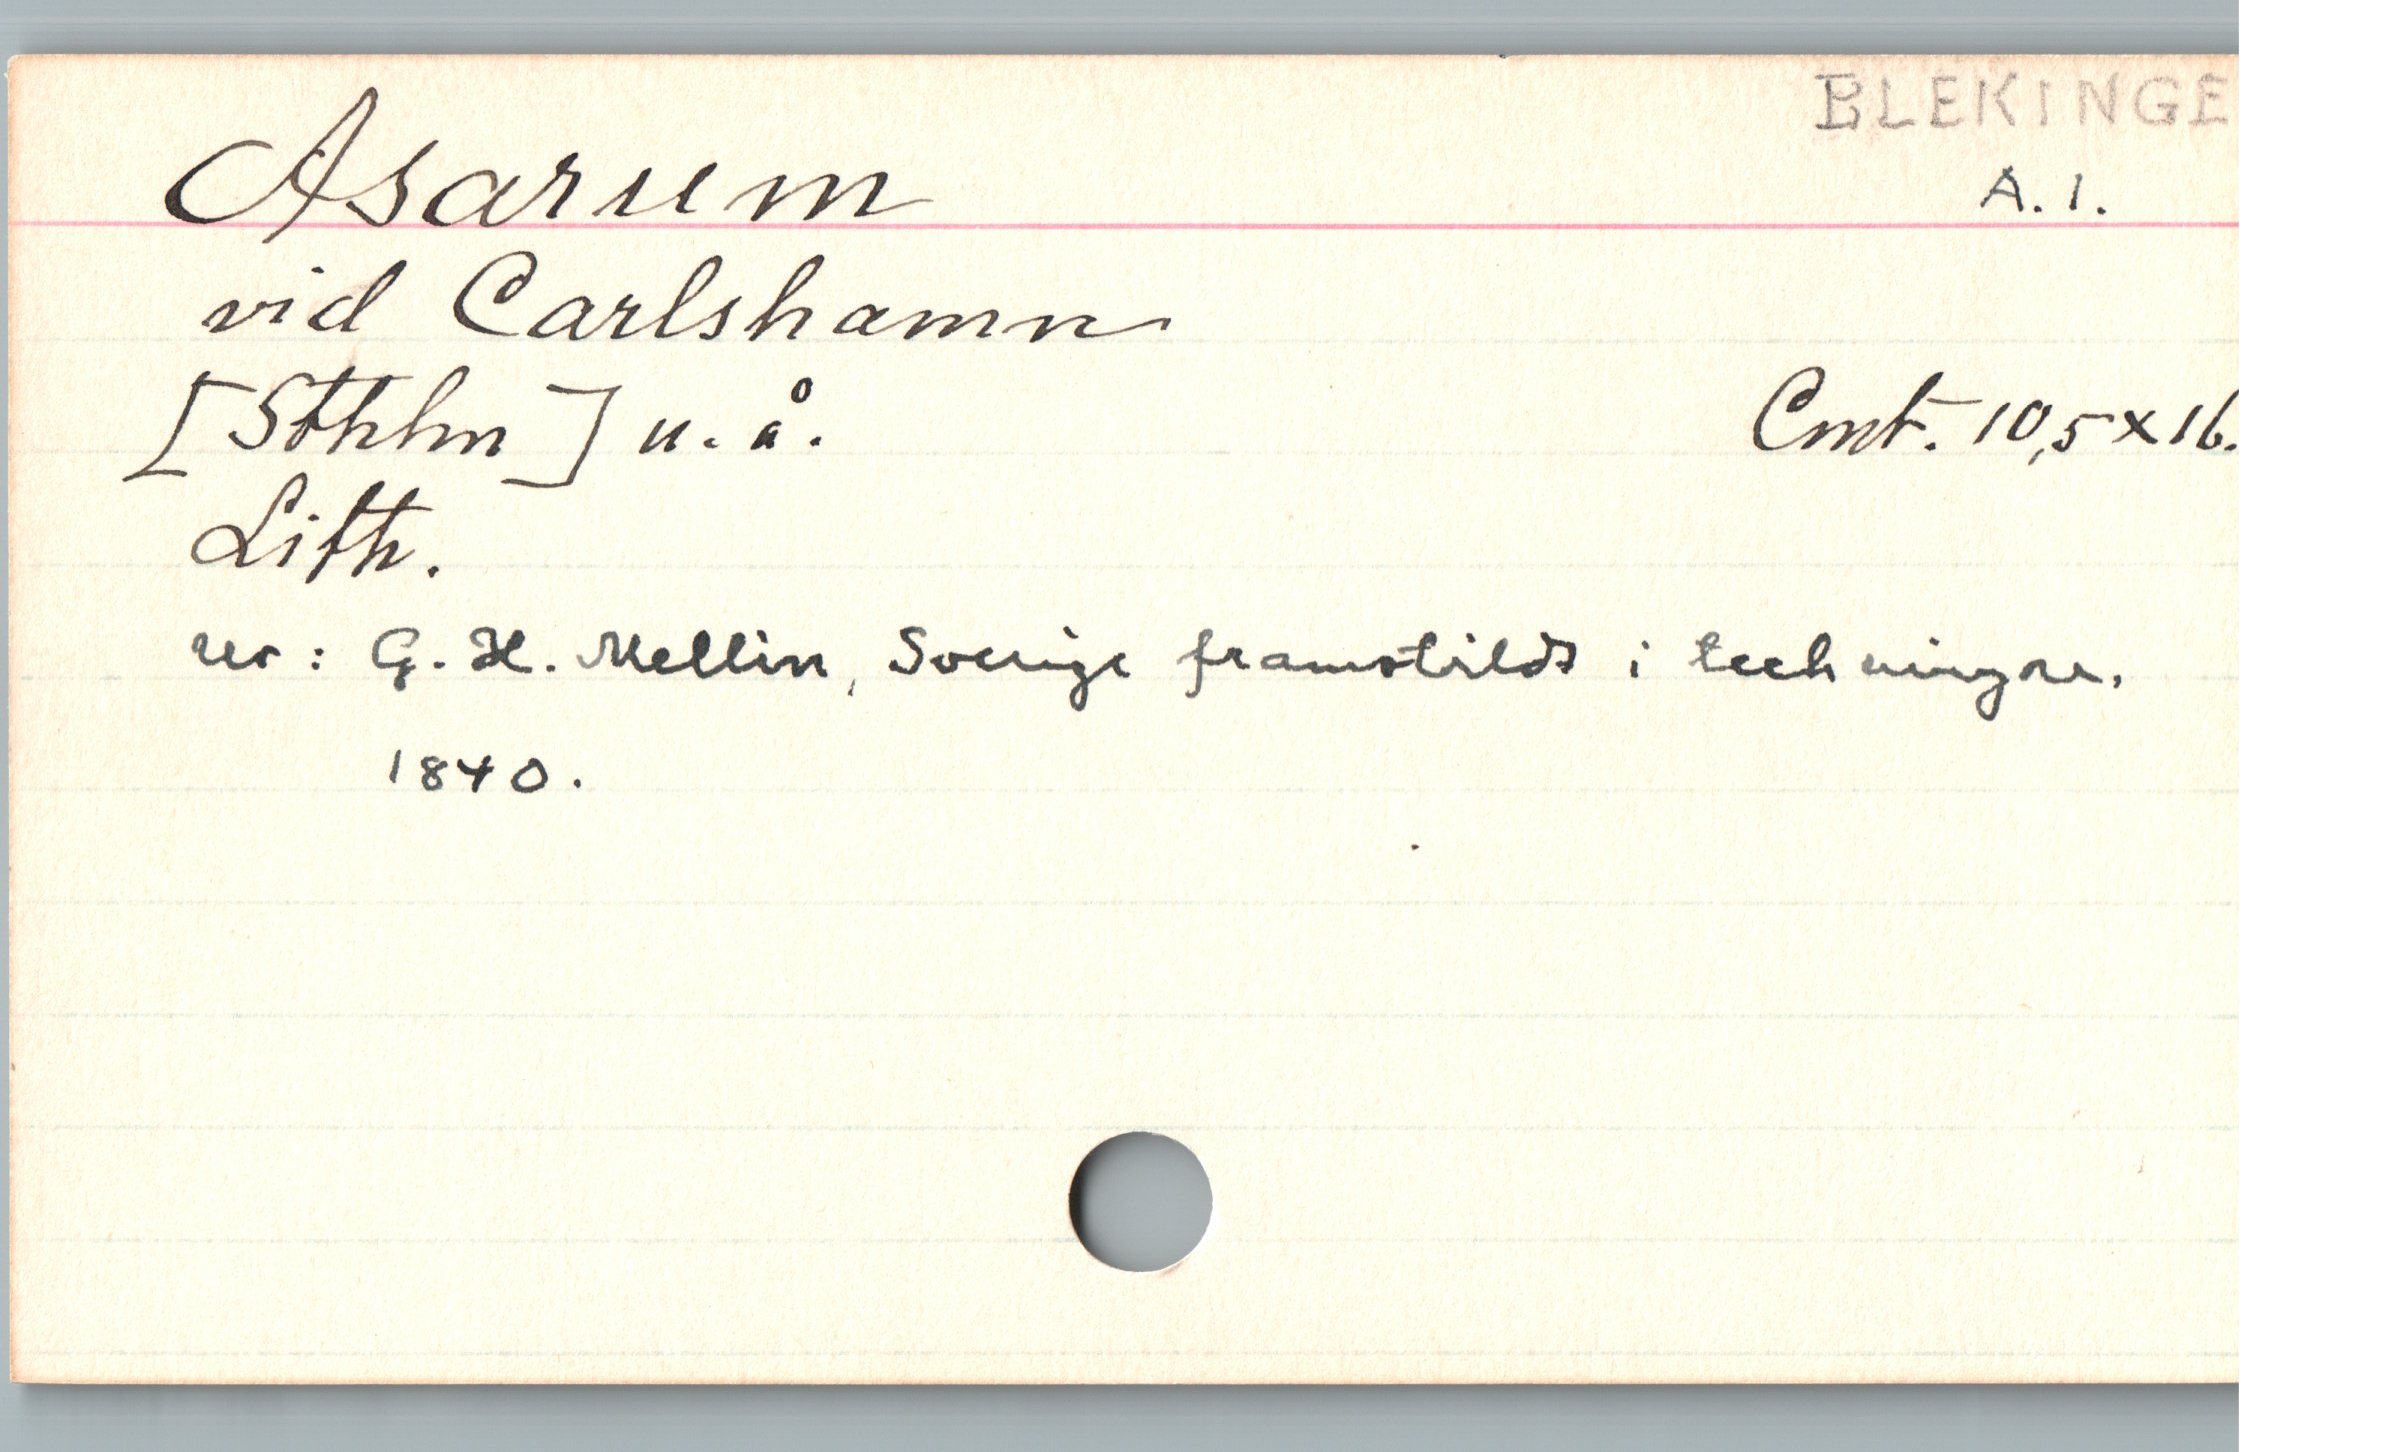 BLEKINGE
Asarum A. 1.
vid Carlshamn
[Sthlm] u. å. Cmt. 10,5 x 16.
Lith.
ur: G. H. Mellin, Sverige framstäldt i teckningar.
1840.